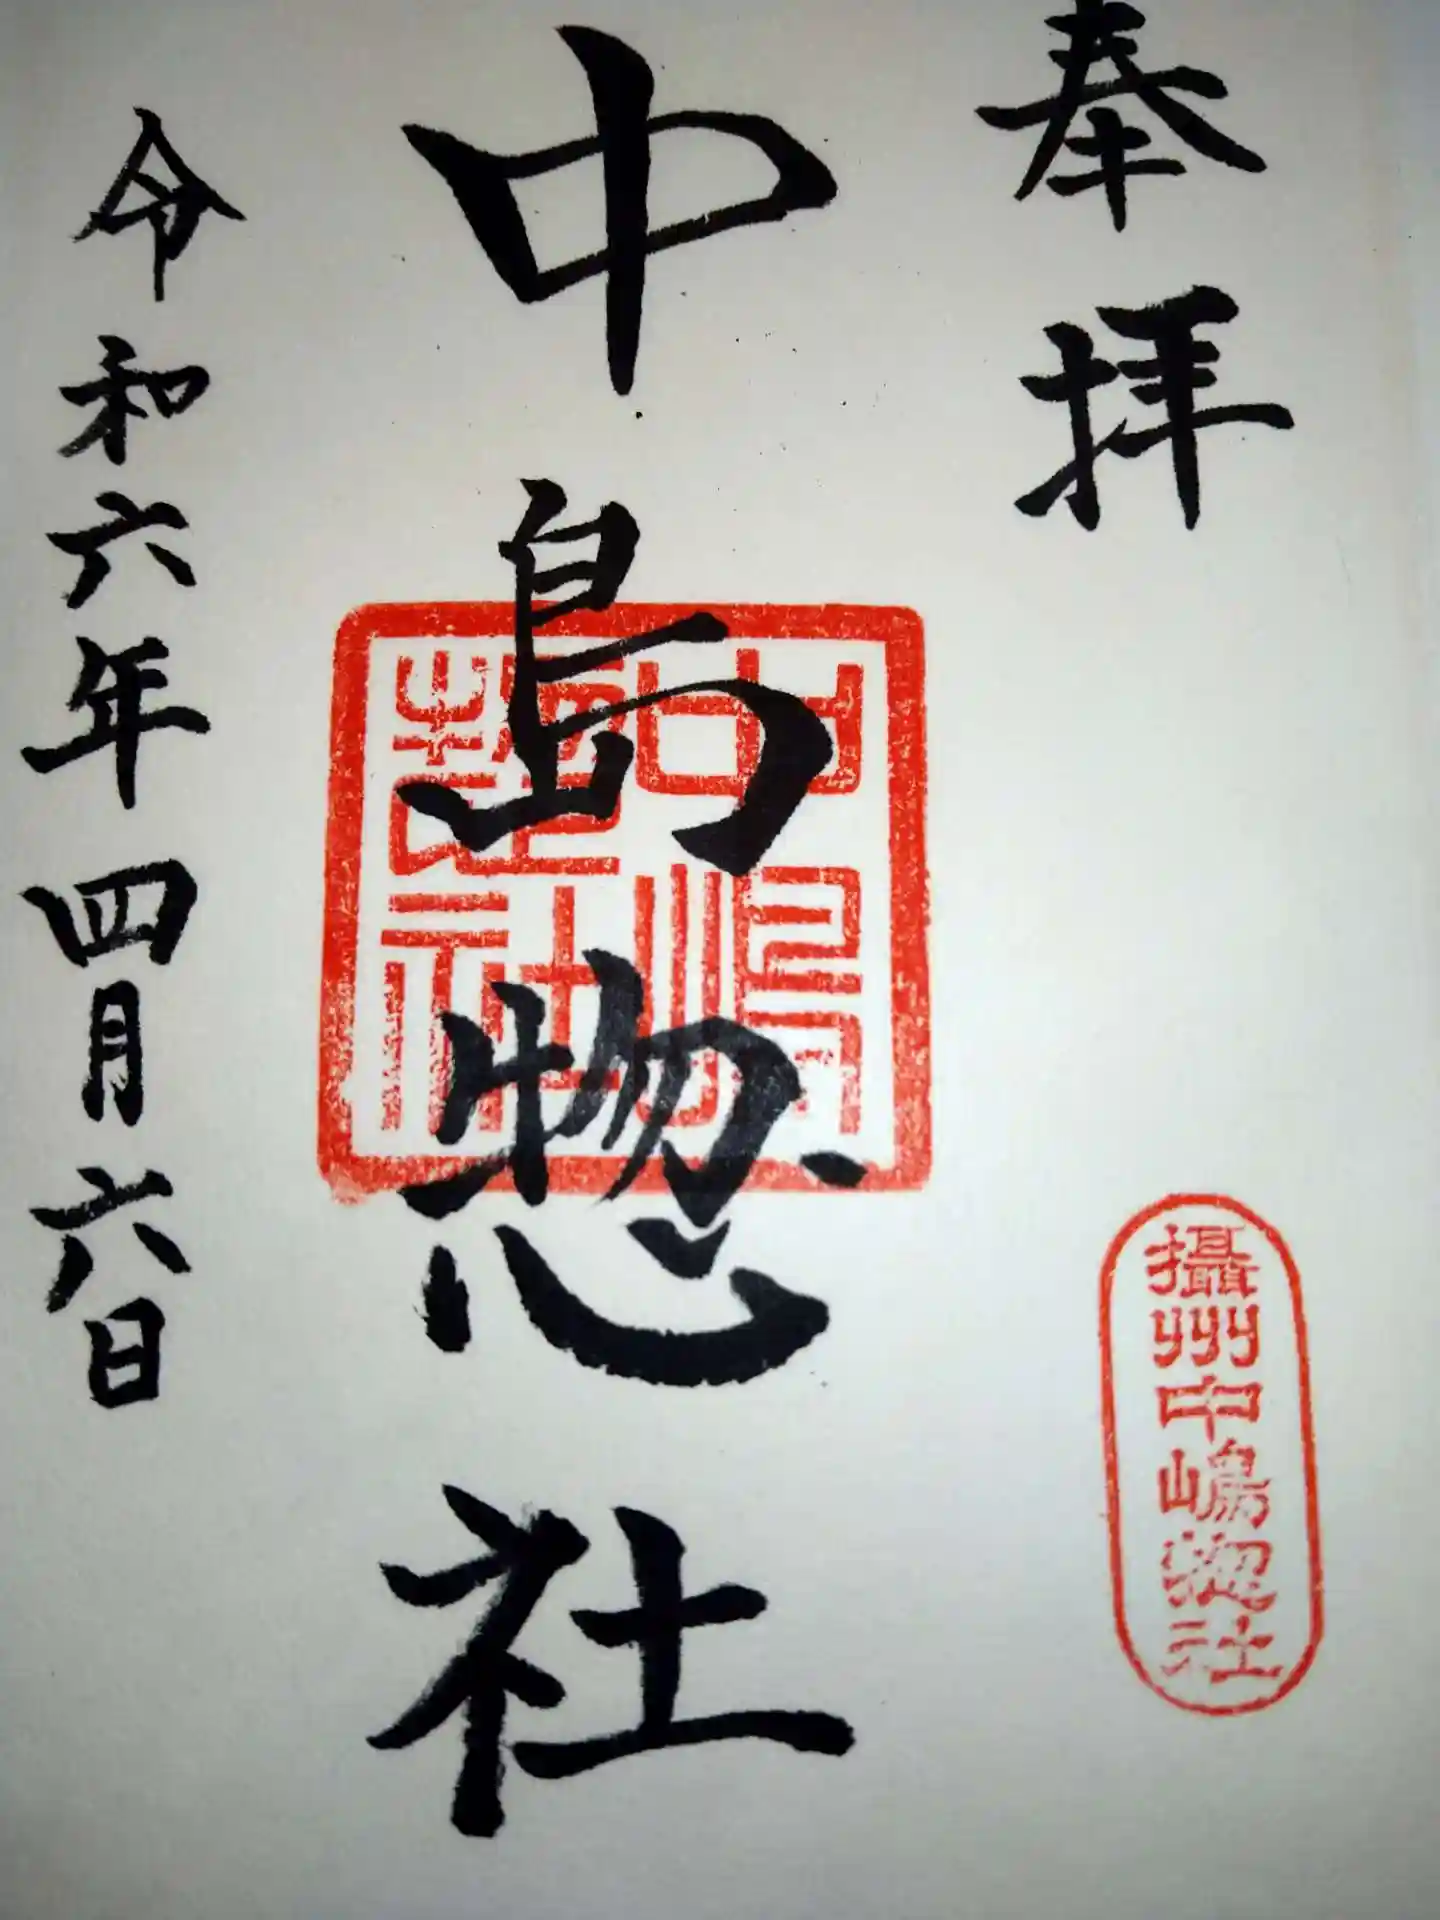 奉拝
攝州中嶋惣社
中島惣社
中嶋惣社
令和六年四月六日